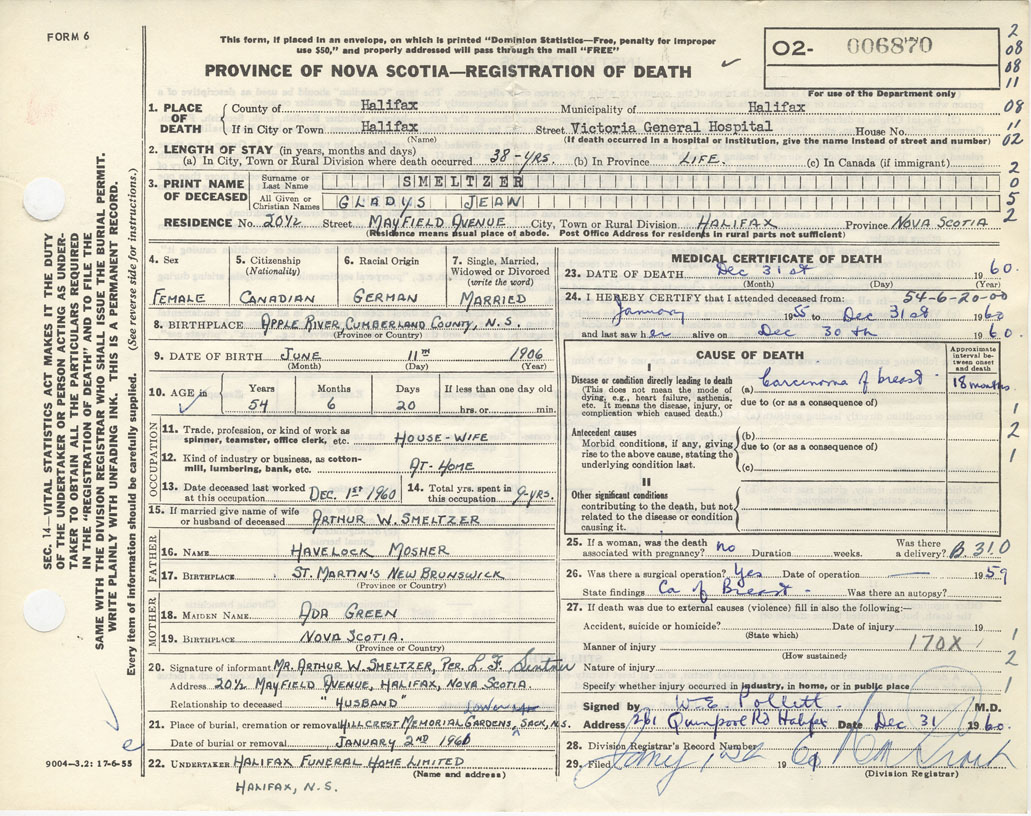 FORM 6
This form, if placed in an envelope, on which is printed "Dominion Statistics—Free, penalty for improper
use $50," and properly addressed will pass through the mail "FREE"
O2- 006870
For use of the Department only
PROVINCE OF NOVA SCOTIA—REGISTRATION OF DEATH
2
08
08
11
08
11
02
2
0
5
2
1. PLACE OF DEATH
County of Halifax Municipality of Halifax
If in City or Town Halifax Street Victoria General Hospital House No.
(Name) (If death occurred in a hospital or institution, give the name instead of street and number)
2. LENGTH OF STAY (in years, months and days)
(a) In City, Town or Rural Division where death occurred 38-YRS. (b) In Province LIFE. (c) In Canada (if immigrant)
3. PRINT NAME OF DECEASED
Surname or Last Name SMELTZER
All Given or Christian Names GLADYS JEAN
RESIDENCE No. 20½ Street MAYFIELD AVENUE City, Town or Rural Division HALIFAX Province NOVA SCOTIA
(Residence means usual place of abode. Post Office Address for residents in rural parts not sufficient)
4. Sex
FEMALE
5. Citizenship
(Nationality)
CANADIAN
6. Racial Origin
GERMAN
7. Single, Married,
Widowed or Divorced
(write the word)
MARRIED
8. BIRTHPLACE APPLE RIVER, CUMBERLAND COUNTY, N.S.
(Province or Country)
9. DATE OF BIRTH JUNE 11TH 1906
(Month) (Day) (Year)
10. AGE in Years Months Days If less than one day old
54 6 20 hrs. or min.
OCCUPATION
11. Trade, profession, or kind of work as
spinner, teamster, office clerk, etc. HOUSE-WIFE
12. Kind of industry or business, as cotton-
mill, lumbering, bank, etc. AT-HOME
13. Date deceased last worked
at this occupation DEC. 1ST 1960
14. Total yrs. spent in
this occupation 9-YRS.
15. If married give name of wife
or husband of deceased ARTHUR W. SMELTZER
FATHER
16. NAME HAVELOCK MOSHER
17. BIRTHPLACE ST. MARTIN'S NEW BRUNSWICK
(Province or Country)
MOTHER
18. MAIDEN NAME ADA GREEN
19. BIRTHPLACE NOVA SCOTIA.
(Province or Country)
20. Signature of informant MR. ARTHUR W. SMELTZER, PER. L. F.
Address 20½ MAYFIELD AVENUE, HALIFAX, NOVA SCOTIA.
Relationship to deceased "HUSBAND"
Lower
21. Place of burial, cremation or removal HILLCREST MEMORIAL GARDENS, SACK, N.S.
Date of burial or removal JANUARY 2ND 1961
22. UNDERTAKER HALIFAX FUNERAL HOME LIMITED
(Name and address)
HALIFAX, N.S.
MEDICAL CERTIFICATE OF DEATH
23. DATE OF DEATH Dec 31st 1960.
(Month) (Day) (Year)
24. I HEREBY CERTIFY that I attended deceased from: 54-6-20-00
January 1955 to Dec 31st 1960
and last saw her alive on Dec 30th 1960.
CAUSE OF DEATH
Approximate
interval be-
tween onset
and death
I
Disease or condition directly leading to death
(This does not mean the mode of
dying, e.g., heart failure, asthenia,
etc. It means the disease, injury, or
complication which caused death.)
(a) Carcinoma of breast 18 months
due to (or as a consequence of)
Antecedent causes
Morbid conditions, if any, giving
rise to the above cause, stating the
underlying condition last.
(b)
due to (or as a consequence of)
(c)
1
2
1
II
Other significant conditions
contributing to the death, but not
related to the disease or condition
causing it.
25. If a woman, was the death
associated with pregnancy? no Duration weeks. Was there
a delivery? B 310
26. Was there a surgical operation? Yes Date of operation — 1959
State findings Ca of Breast - Was there an autopsy?
27. If death was due to external causes (violence) fill in also the following:—
Accident, suicide or homicide? Date of injury 19
(State which)
Manner of injury 170X
(How sustained)
Nature of injury
1
2
1
Specify whether injury occurred in industry, in home, or in public place
Signed by W.E. Pollett M.D.
Address 261 Quinpool Rd Halifax Date Dec 31 1960.
28. Division Registrar's Record Number
29. Filed 1961
(Division Registrar)
SEC. 14—VITAL STATISTICS ACT MAKES IT THE DUTY
OF THE UNDERTAKER OR PERSON ACTING AS UNDER-
TAKER TO OBTAIN ALL THE PARTICULARS REQUIRED
IN THE "REGISTRATION OF DEATH" AND TO FILE THE
SAME WITH THE DIVISION REGISTRAR WHO SHALL ISSUE THE BURIAL PERMIT.
WRITE PLAINLY WITH UNFADING INK. THIS IS A PERMANENT RECORD.
Every item of information should be carefully supplied. (See reverse side for instructions.)
9004—3.2: 17-6-55